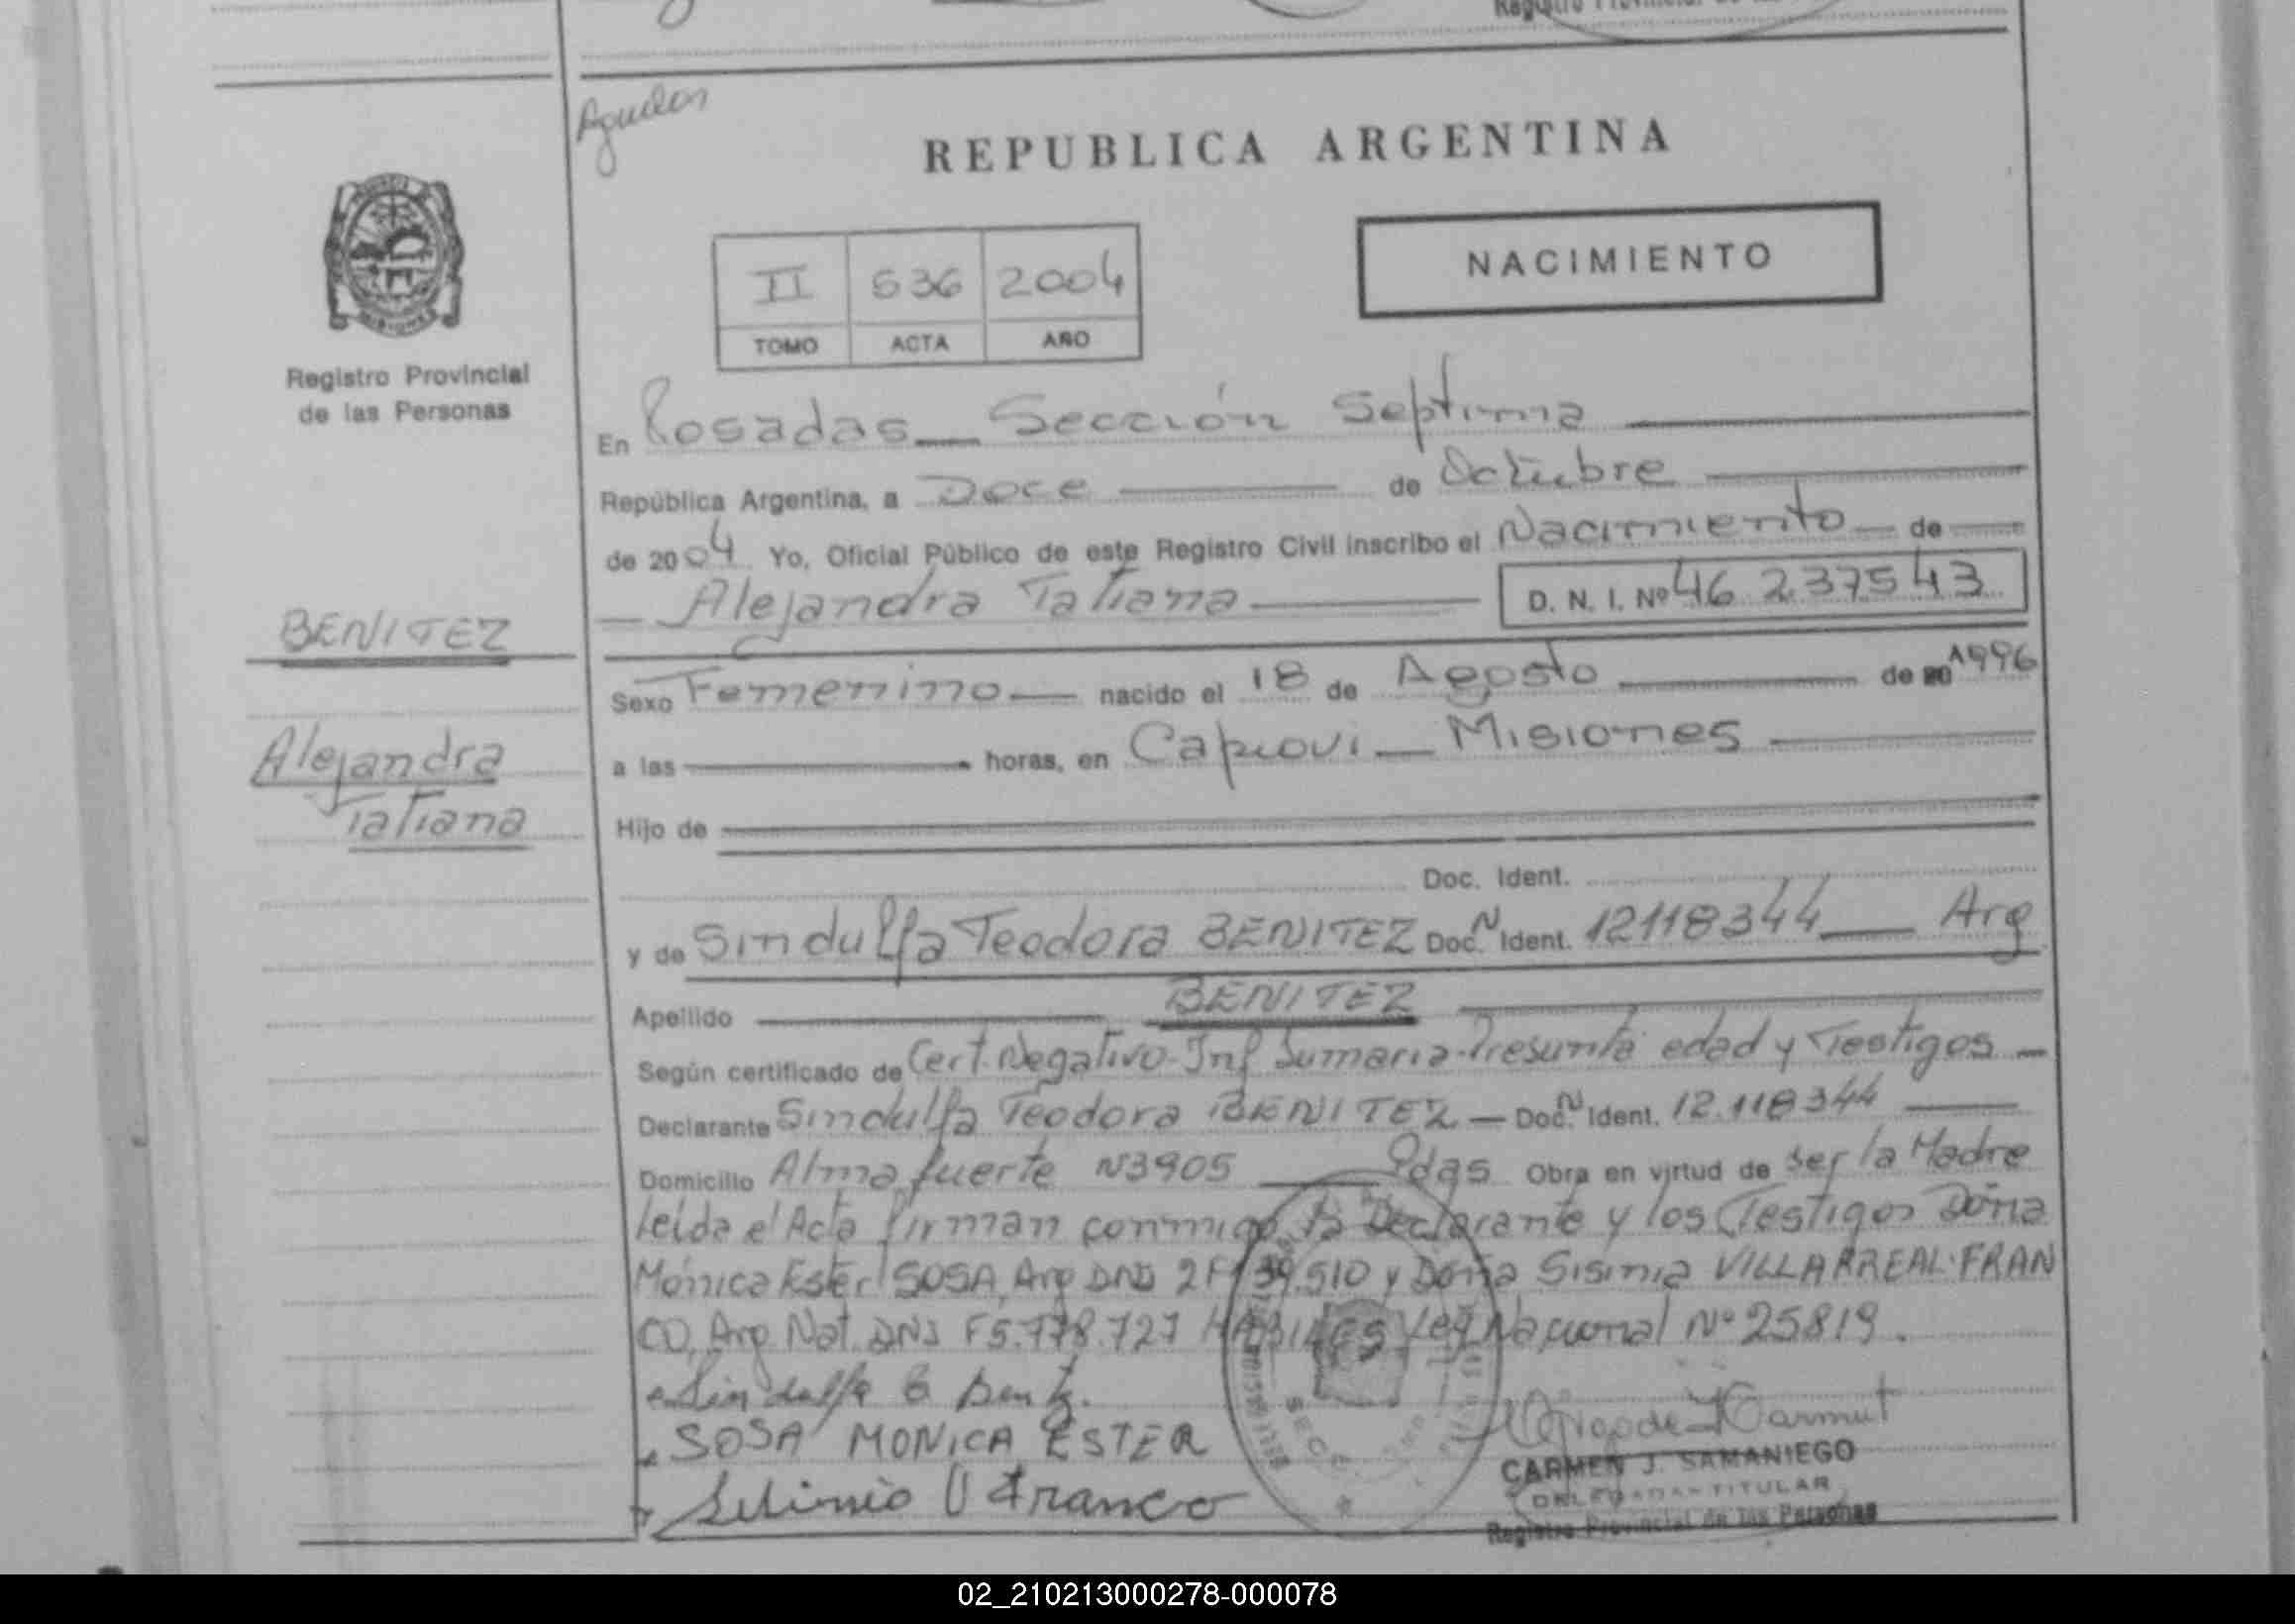 Registro Provincial de las
Agudos
REPUBLICA ARGENTINA
MISIONES
Registro Provincial
de las Personas
NACIMIENTO
II 536 2004
TOMO ACTA AÑO
En Posadas Sección Septima
República Argentina, a Doce de Octubre
de 2004 Yo, Oficial Público de este Registro Civil inscribo el Nacimiento de
Alejandra Tatiana D. N. I. Nº 46 237543
BENITEZ
Alejandra
Tatiana
Sexo Femenino nacido el 18 de Agosto de 20 1996
a las horas, en Capiovi Misiones
Hijo de
Doc. Ident.
y de Sindulfa Teodora BENITEZ Doc. N Ident. 12118344 Arg
Apellido BENITEZ
Según certificado de Cert. Negativo-Inf Sumaria-Presunta edad y Testigos
Declarante Sindulfa Teodora BENITEZ Doc. N Ident. 12.118344
Domicilio Almafuerte N3905 Pdas Obra en virtud de ser la Madre
leida el Acta firman conmigo la Declarante y los Testigos Doña
Mónica Ester SOSA, Arg DNI y Doña Sisinia VILLARREAL-FRAN
CO, Arg. Nat. DNI F5.778.727 HABILES Ley Nacional Nº 25819.
Sindulfa
SOSA MONICA ESTER
V Franco
CARMEN J. SAMANIEGO
DELEGADA TITULAR
Registro Provincial de las Personas
02_210213000278-000078